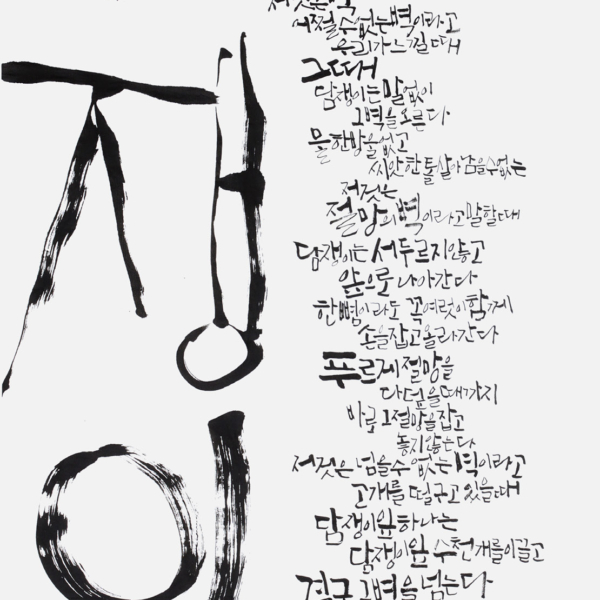 쟁
이
저것은 벽
어쩔 수 없는 벽이라고
우리가 느낄 때
그때
담쟁이는 말없이
그 벽을 오른다
물 한방울 없고
씨앗 한 톨 살아남을 수 없는
저것은
절망의 벽이라고 말할 때
담쟁이는 서두르지 않고
앞으로 나아간다
한 뼘이라도 꼭 여럿이 함께
손을 잡고 올라간다
푸르게 절망을
다 덮을 때까지
바로 그 절망을 잡고
놓지 않는다
저것은 넘을 수 없는 벽이라고
고개를 떨구고 있을 때
담쟁이 잎 하나는
담쟁이 잎 수천 개를 이끌고
결국 그 벽을 넘는다